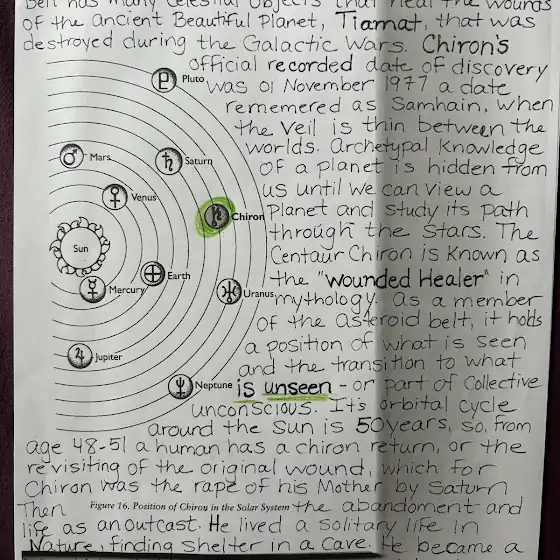 belt has many celestial objects that heal the wounds
of the ancient Beautiful Planet, Tiamat, that was
destroyed during the Galactic Wars. Chiron's
official recorded date of discovery
was 01 November 1977 a date
rememered as Samhain, when
the Veil is thin between the
worlds. Archetypal Knowledge
of a planet is hidden from
us until we can view a
Planet and study its path
through the Stars. The
Centaur Chiron is Known as
the "Wounded Healer" in
mythology. As a member
of the asteroid belt, it holds
a position of what is seen
and the transition to what
is unseen - or part of Collective
unconscious. It's orbital cycle
around the Sun is 50 years, so, from
age 48-51 a human has a chiron return, or the
revisiting of the original wound, which for
Chiron was the rape of his Mother by Saturn
Then the abandoment and
life as an outcast. He lived a solitary life in
Nature, finding shelter in a Cave. He became a
Pluto
Mars
Saturn
Venus
Chiron
Sun
Earth
Mercury
Uranus
Jupiter
Neptune
Figure 16. Position of Chiron in the Solar System